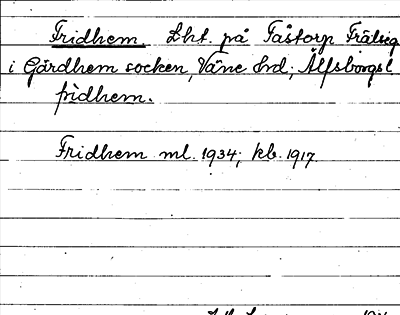 Fridhem. Lht. på Fåstorp Frälseg
i Gärdhem socken, Väne Hrd; Älfsborgs l.
frìdhem.
Fridhem ml. 1934; kb. 1917.